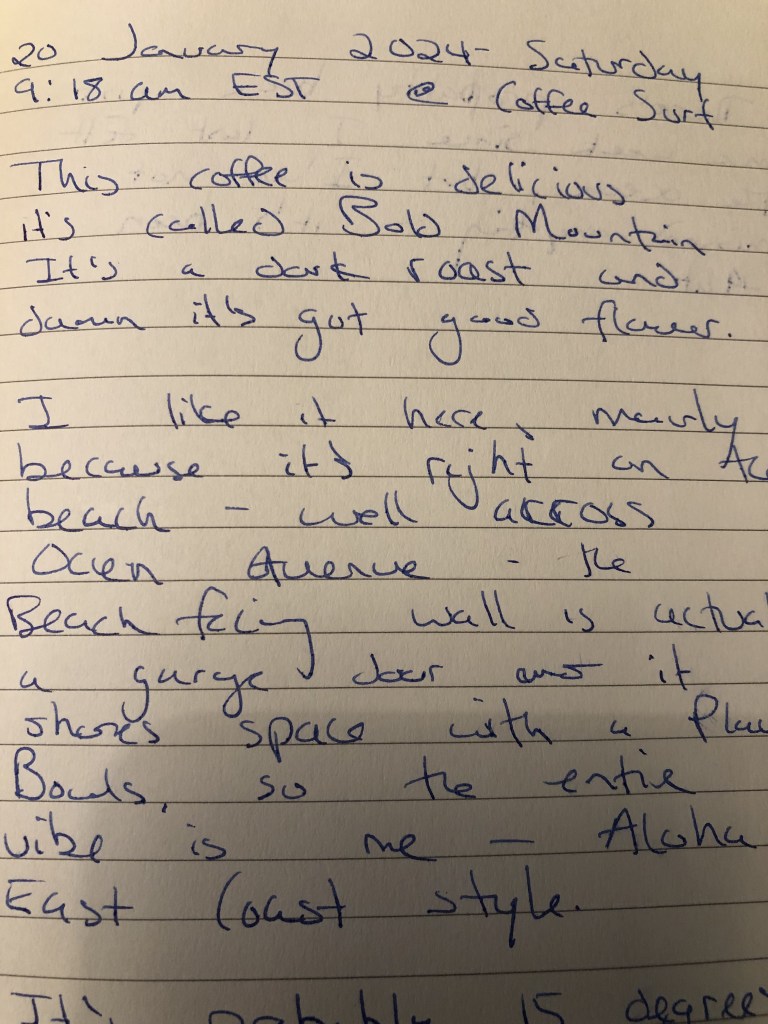 20 January 2024 - Saturday
9:18 am EST @ Coffee Surf
This coffee is delicious
it's called Bold Mountain.
It's a dark roast and
damn it's got good flavor.
I like it here, mainly
because it's right on
beach - well across
Ocen Avenue - the
Beach facing wall is actual
a garage door and it
shares space with a
Bowls, so the entire
vibe is me - Aloha
East Coast style.
It's probably 15 degree